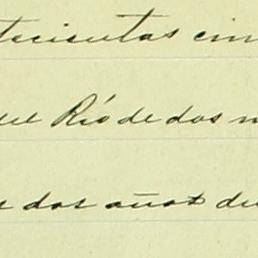 tecientas cin
del Río de dos m
s dos años de